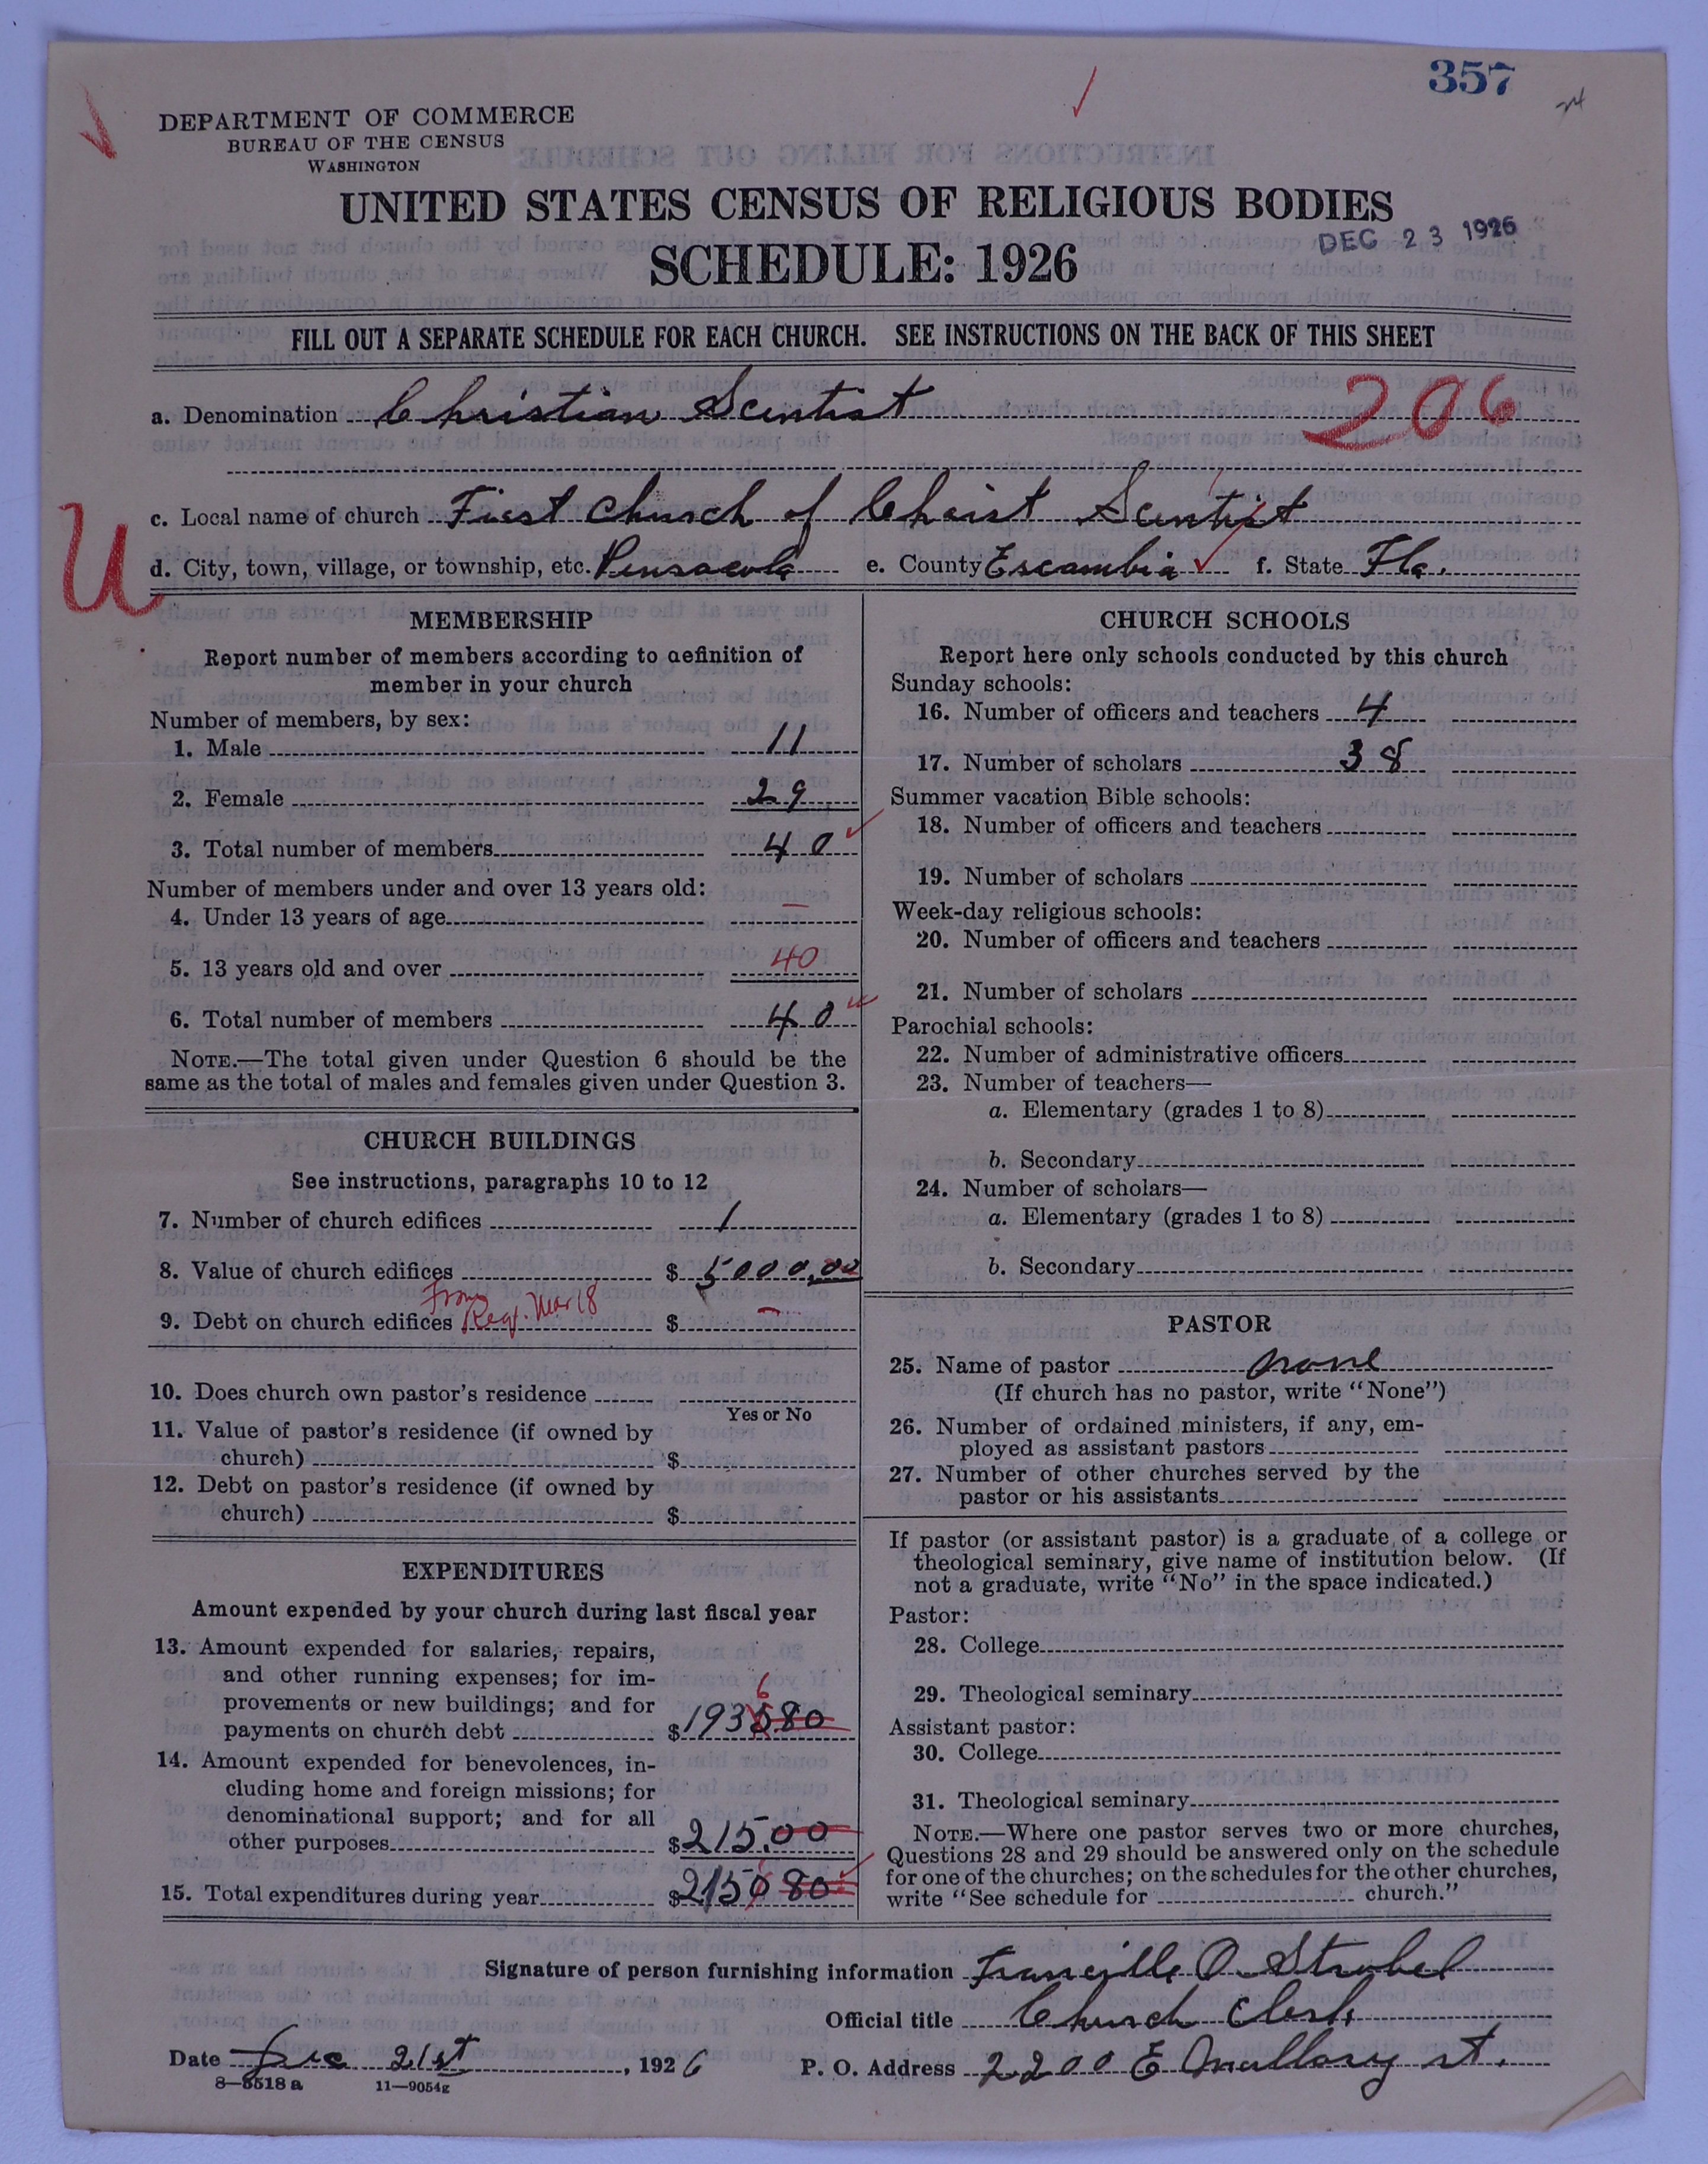 357
DEPARTMENT OF COMMERCE
BUREAU OF THE CENSUS
WASHINGTON
UNITED STATES CENSUS OF RELIGIOUS BODIES
DEC 23 1926
SCHEDULE: 1926
FILL OUT A SEPARATE SCHEDULE FOR EACH CHURCH. SEE INSTRUCTIONS ON THE BACK OF THIS SHEET
a. Denomination Christian Scientist 206
c. Local name of church First Church of Christ Scientist
U
d. City, town, village, or township, etc. Pensacola e. County Escambia f. State Fla.
MEMBERSHIP
Report number of members according to definition of
member in your church
Number of members, by sex:
1. Male 11
2. Female 29
3. Total number of members 40
Number of members under and over 13 years old:
4. Under 13 years of age —
5. 13 years old and over 40
6. Total number of members 40
NOTE.—The total given under Question 6 should be the
same as the total of males and females given under Question 3.
CHURCH BUILDINGS
See instructions, paragraphs 10 to 12
7. Number of church edifices 1
8. Value of church edifices $ 5000.00
From
9. Debt on church edifices Reg. Mar 18 $ —
10. Does church own pastor's residence
Yes or No
11. Value of pastor's residence (if owned by
church) $
12. Debt on pastor's residence (if owned by
church) $
EXPENDITURES
Amount expended by your church during last fiscal year
13. Amount expended for salaries, repairs,
and other running expenses; for im-
provements or new buildings; and for
6
payments on church debt $1935.80
14. Amount expended for benevolences, in-
cluding home and foreign missions; for
denominational support; and for all
other purposes $215.00
15. Total expenditures during year $2150 80
CHURCH SCHOOLS
Report here only schools conducted by this church
Sunday schools:
16. Number of officers and teachers 4
17. Number of scholars 38
Summer vacation Bible schools:
18. Number of officers and teachers
19. Number of scholars
Week-day religious schools:
20. Number of officers and teachers
21. Number of scholars
Parochial schools:
22. Number of administrative officers
23. Number of teachers—
a. Elementary (grades 1 to 8)
b. Secondary
24. Number of scholars—
a. Elementary (grades 1 to 8)
b. Secondary
PASTOR
25. Name of pastor none
(If church has no pastor, write "None")
26. Number of ordained ministers, if any, em-
ployed as assistant pastors
27. Number of other churches served by the
pastor or his assistants
If pastor (or assistant pastor) is a graduate of a college or
theological seminary, give name of institution below. (If
not a graduate, write "No" in the space indicated.)
Pastor:
28. College
29. Theological seminary
Assistant pastor:
30. College
31. Theological seminary
NOTE.—Where one pastor serves two or more churches,
Questions 28 and 29 should be answered only on the schedule
for one of the churches; on the schedules for the other churches,
write "See schedule for church."
Signature of person furnishing information Francille O. Strobel
Official title Church Clerk
Date Dec 21st, 1926 P. O. Address 2200 E Mallory st.
8—5518 a 11—9054g